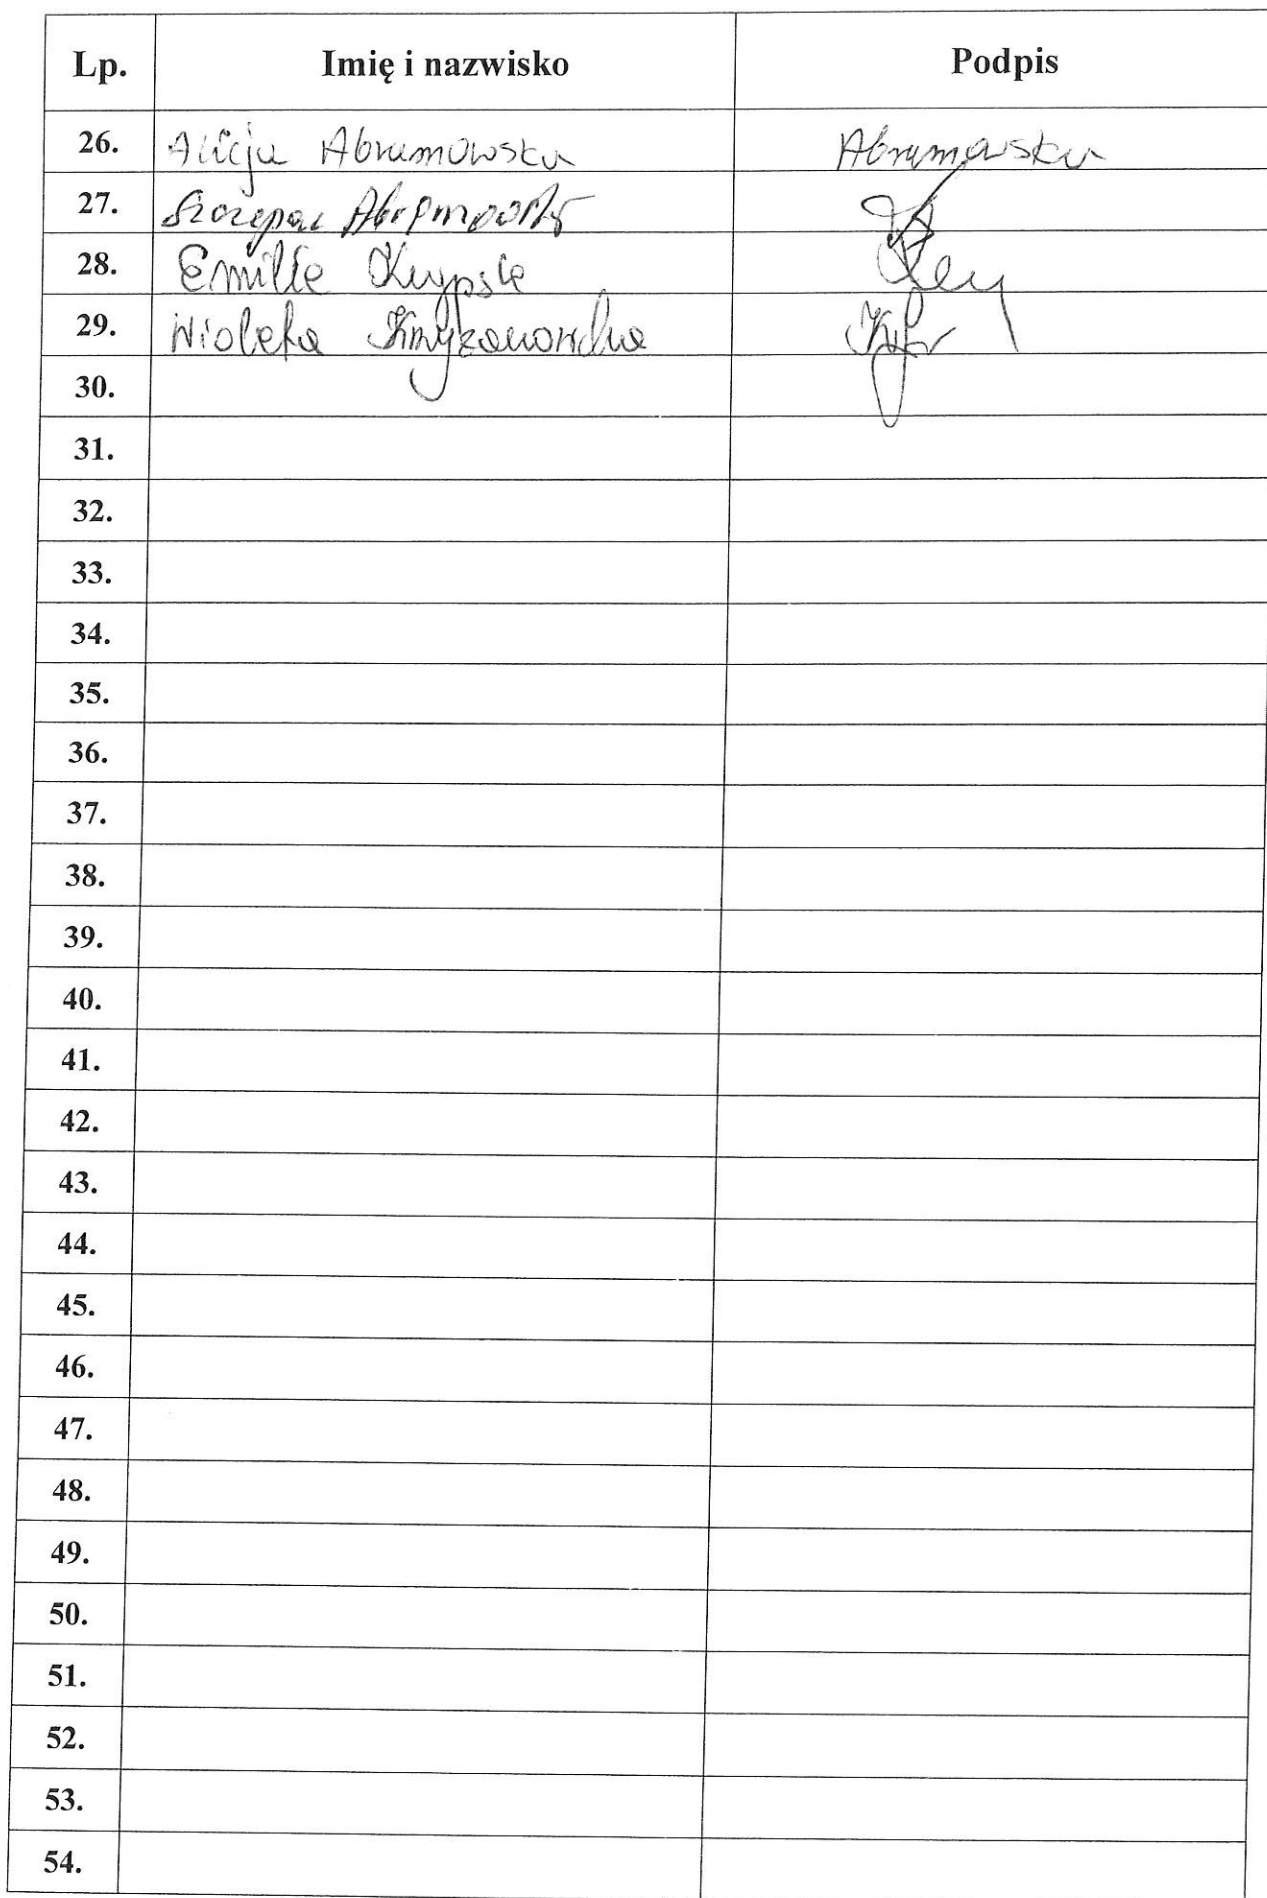 Lp. Imię i nazwisko Podpis
26. Alicja Abramowska Abramowska
27. Szczepan Abramowski
28. Emilia
29. Wioleta Krzyżanowska
30.
31.
32.
33.
34.
35.
36.
37.
38.
39.
40.
41.
42.
43.
44.
45.
46.
47.
48.
49.
50.
51.
52.
53.
54.